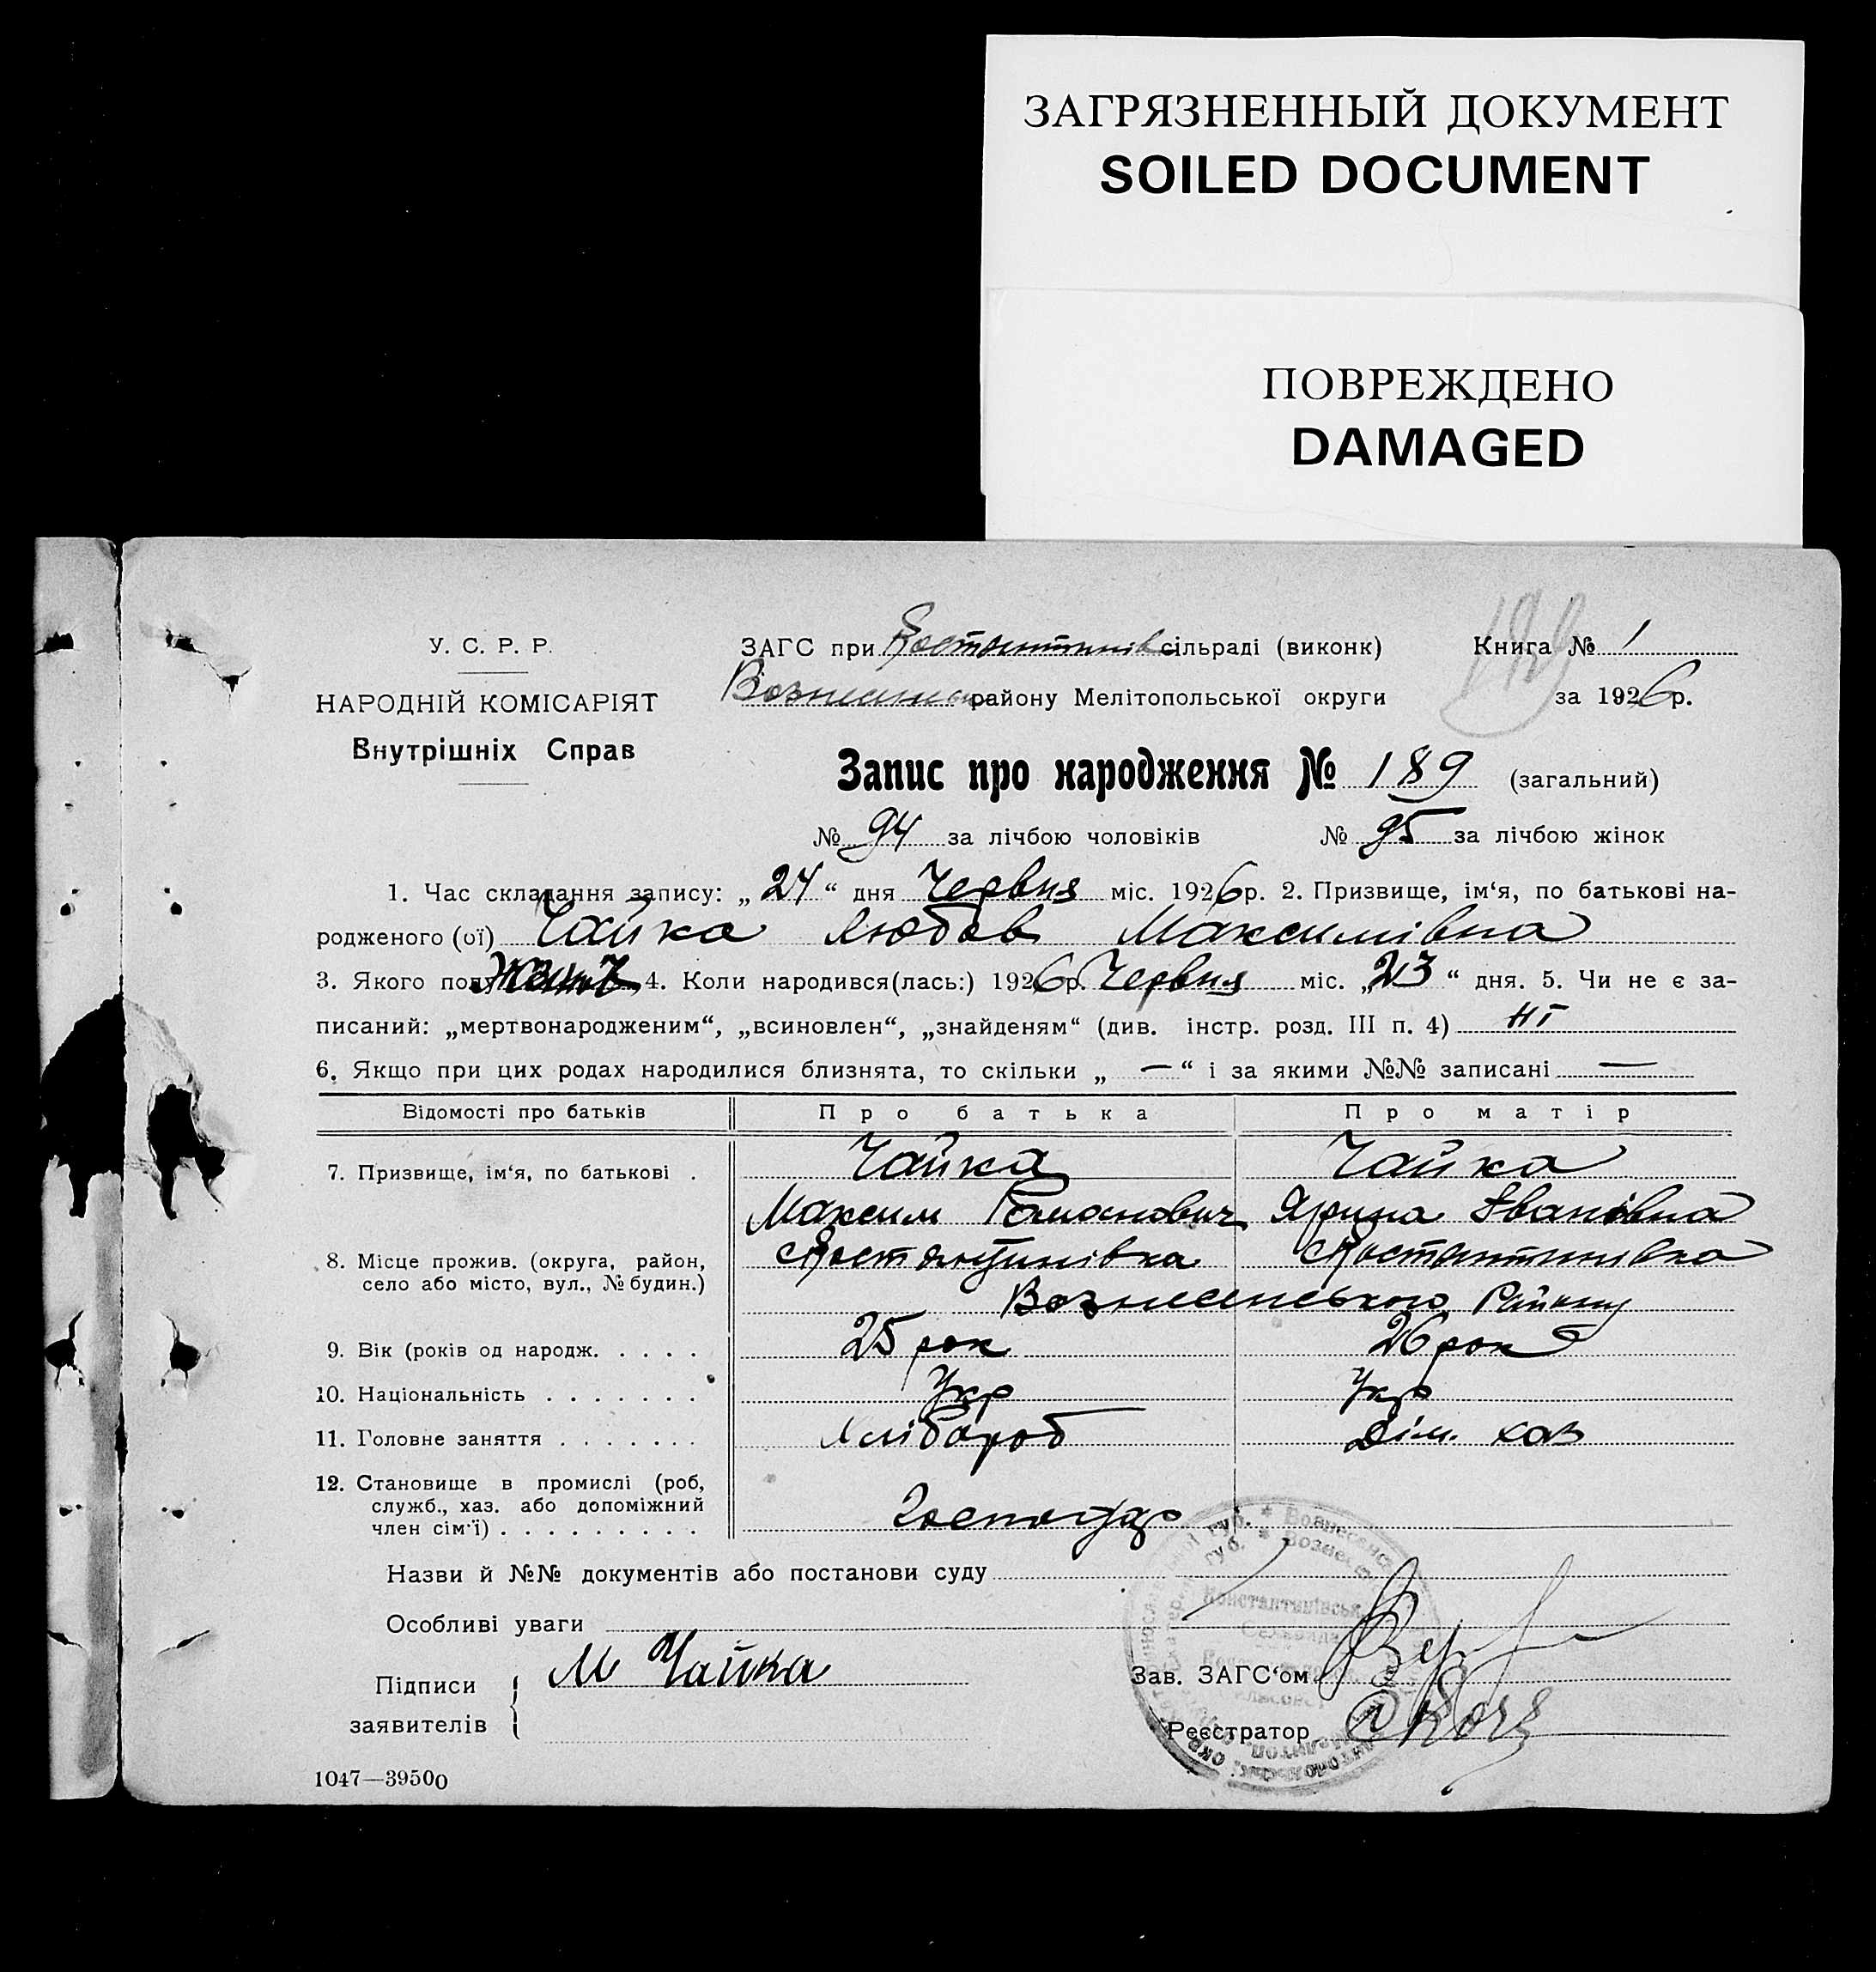 ЗАГРЯЗНЕННЫЙ ДОКУМЕНТ
SOILED DOCUMENT
ПОВРЕЖДЕНО
DAMAGED
У. С. Р. Р.
НАРОДНІЙ КОМІСАРІЯТ
Внутрішніх Справ
ЗАГС при Костянтинів сільраді (виконк) Книга № 1
району Мелітопольської округи за 1926р.
189
Запис про народження № 189 (загальний)
№ 94 за лічбою чоловіків № 95 за лічбою жінок
1. Час складання запису: „24“ дня Червня міс. 1926р. 2. Призвище, ім‘я, по батькові на-
родженого (ої) Чайка Любов Максимівна
3. Якого полу 4. Коли народився(лась:) 1926р. Червня міс. „23“ дня. 5. Чи не є за-
писаний: „мертвонародженим“, „всиновлен“, „знайденям“ (див. інстр. розд. III п. 4) ні
6. Якщо при цих родах народилися близнята, то скільки „ — “ і за якими №№ записані —
Відомості про батьків Про батька Про матір
7. Призвище, ім‘я, по батькові . Чайка Чайка
Максим Романович Ярина Іванівна
8. Місце прожив. (округа, район, Костянтинівка Костянтинівка
село або місто, вул., № будин.) Вознесенського Району
9. Вік (років од народж. . . . . 25 рок 26 рок
10. Національність . . . . . . . Укр Укр
11. Головне заняття . . . . . . . Хлібороб Дім. хаз
12. Становище в промислі (роб,
служб., хаз. або допоміжний
член сім‘ї) . . . . . . . . . Господар
Назви й №№ документів або постанови суду
Особливі уваги
Підписи М Чайка
заявителів
Зав. ЗАГС‘ом
Реєстратор
1047—39500